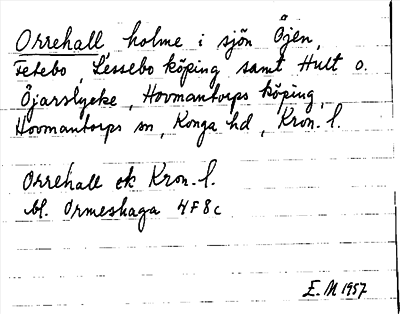 Orrehall holme i sjön Öjen,
Fetebo, Lessebo köping samt Hult o.
Öjarslycke, Hovmantorps köping,
Hovmantorps sn, Konga hd, Kron. l.
Orrehall ek Kron. l.
bl. Ormeshaga 4F8c
E. M 1957